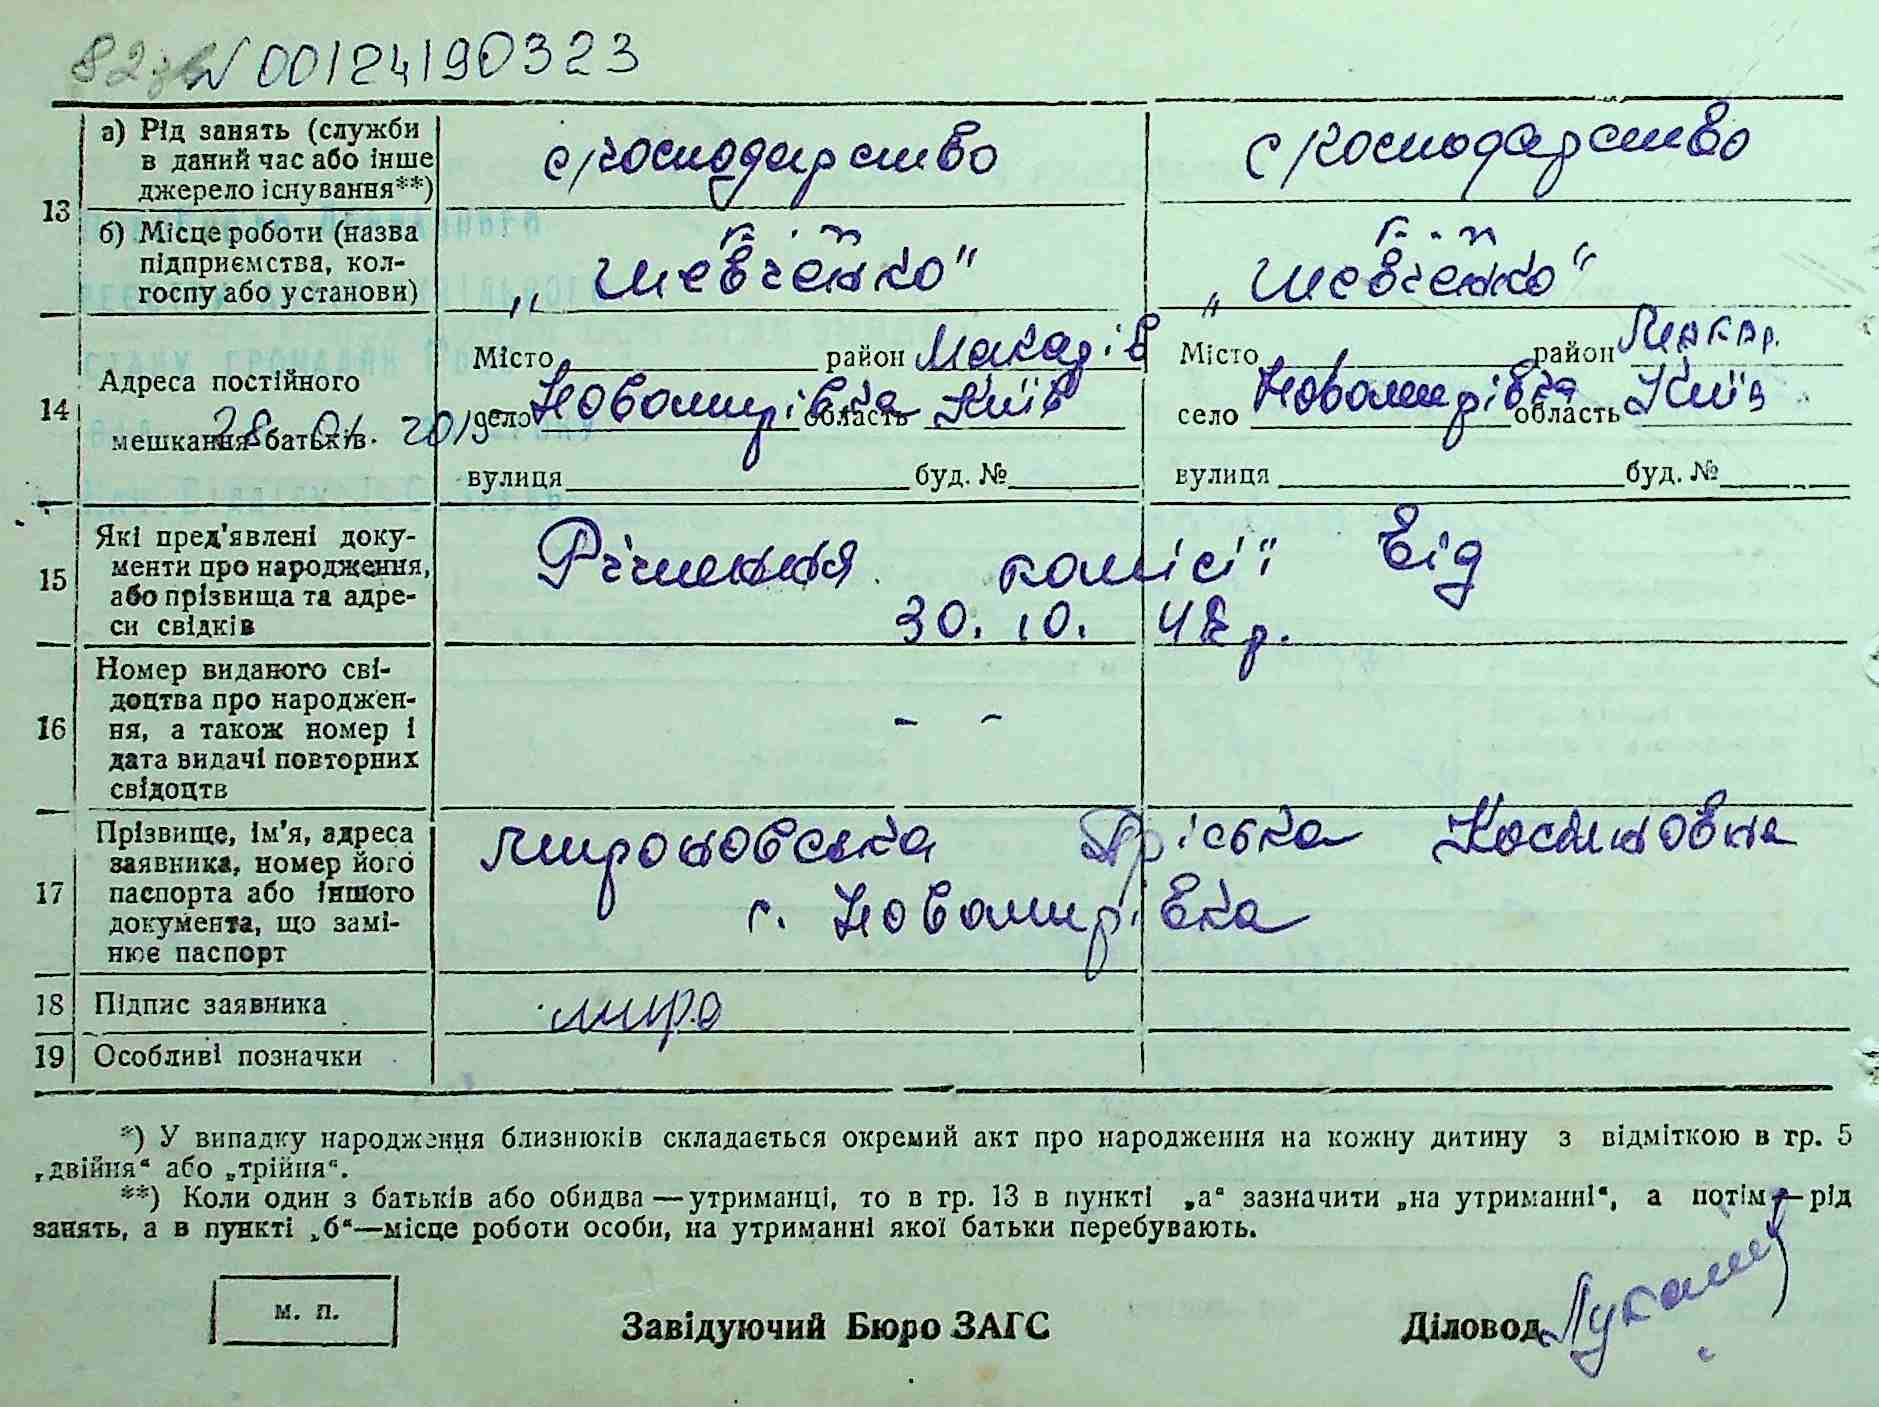 00124190323
13 а) Рід занять (служби в даний час або інше джерело існування**) с/господарство с/господарство
б) Місце роботи (назва підприємства, колгоспу або установи) к-п „Шевченко" к-п „Шевченко"
14 Адреса постійного мешкання батьків. 28 01 2019
Місто район Макарів Місто район Макар.
село Новомирівка область Київ село Новомирівка область Київ
вулиця буд. № вулиця буд. №
15 Які пред'явлені документи про народження, або прізвища та адреси свідків Рішення комісії від
30. 10. 48 р.
16 Номер виданого свідоцтва про народження, а також номер і дата видачі повторних свідоцтв - -
17 Прізвище, ім'я, адреса заявника, номер його паспорта або іншого документа, що замінює паспорт Мироновська Пріська
с. Новомирівка
18 Підпис заявника Миро
19 Особливі позначки
*) У випадку народження близнюків складається окремий акт про народження на кожну дитину з відміткою в гр. 5
„двійня“ або „трійня“.
**) Коли один з батьків або обидва — утриманці, то в гр. 13 в пункті „а“ зазначити „на утриманні“, а потім — рід
занять, а в пункті „б“—місце роботи особи, на утриманні якої батьки перебувають.
м. п.
Завідуючий Бюро ЗАГС Діловод